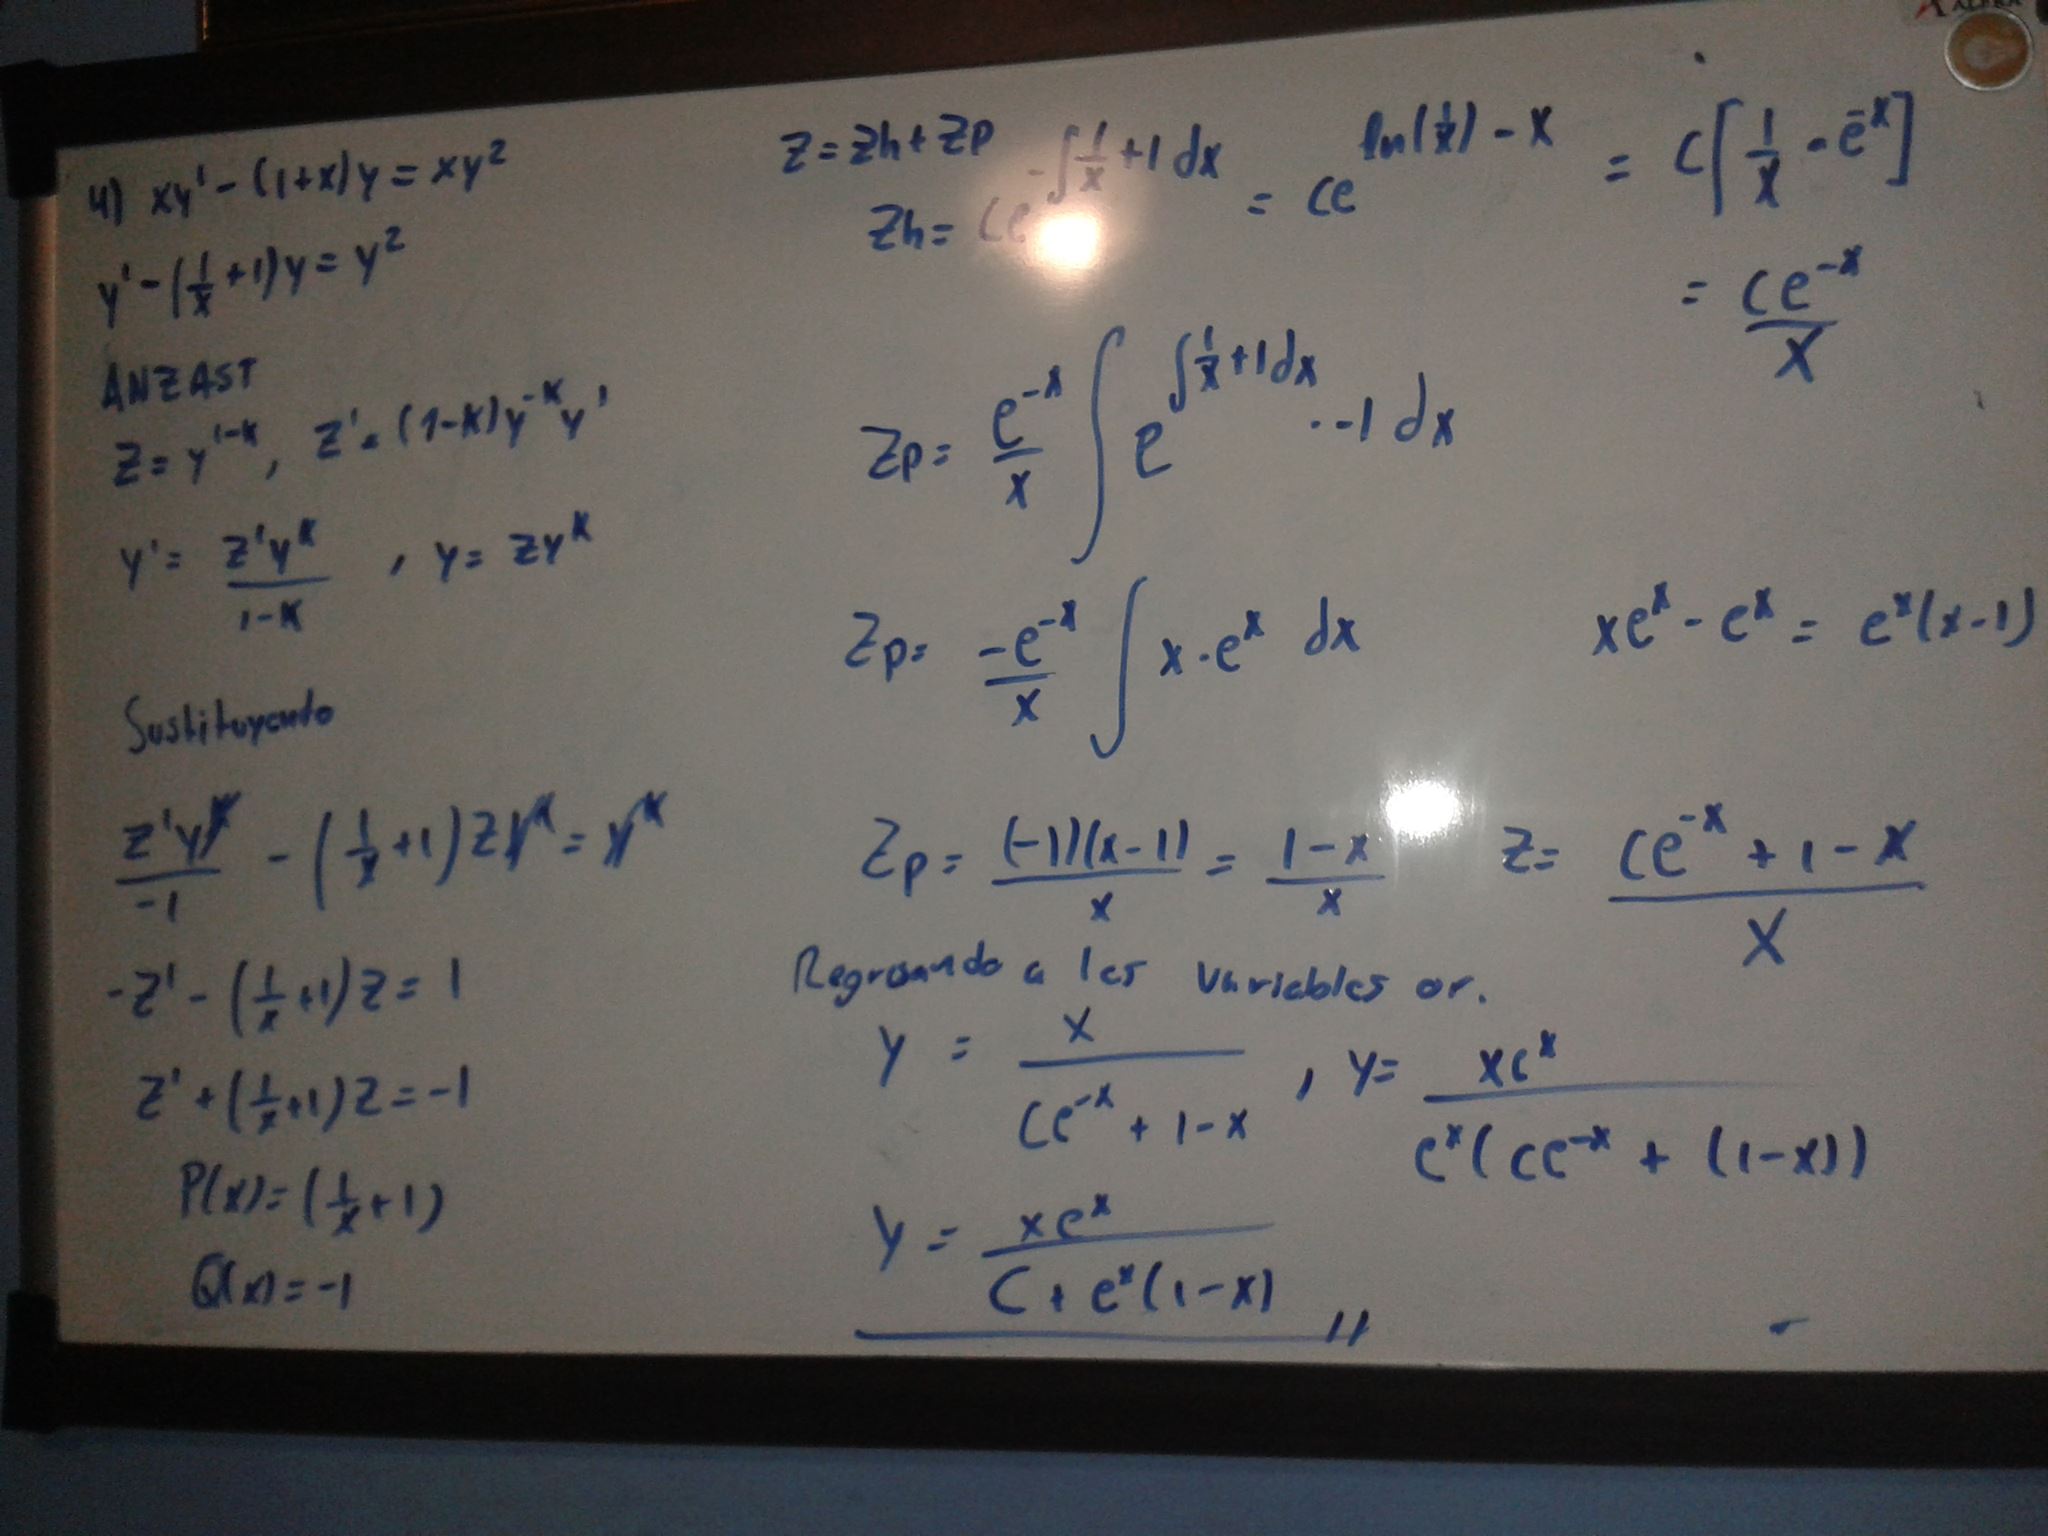 4) xy' - (1+x)y = xy²
y' - (1/x + 1)y = y²
ANZAST
z = y^(1-k), z' = (1-k)y^(-k) y'
y' = z'y^k / (1-k) , y = zy^k
Sustituyendo
z'y^k / -1 - (1/x + 1)zy^k = y^k
-z' - (1/x + 1)z = 1
z' + (1/x + 1)z = -1
P(x) = (1/x + 1)
Q(x) = -1
z = zh + zp
zh = Ce^(-∫ 1/x + 1 dx) = Ce^(ln(1/x) - x) = C[1/x · e^(-x)]
= Ce^(-x) / x
zp = e^(-x)/x ∫ e^(∫ 1/x + 1 dx) · -1 dx
zp = -e^(-x)/x ∫ x · e^x dx xe^x - e^x = e^x(x-1)
zp = (-1)(x-1) / x = 1-x / x z = Ce^(-x) + 1 - x / x
Regresando a las variables or.
y = x / Ce^(-x) + 1 - x , y = xe^x / e^x(Ce^(-x) + (1-x))
y = xe^x / C + e^x(1-x) //